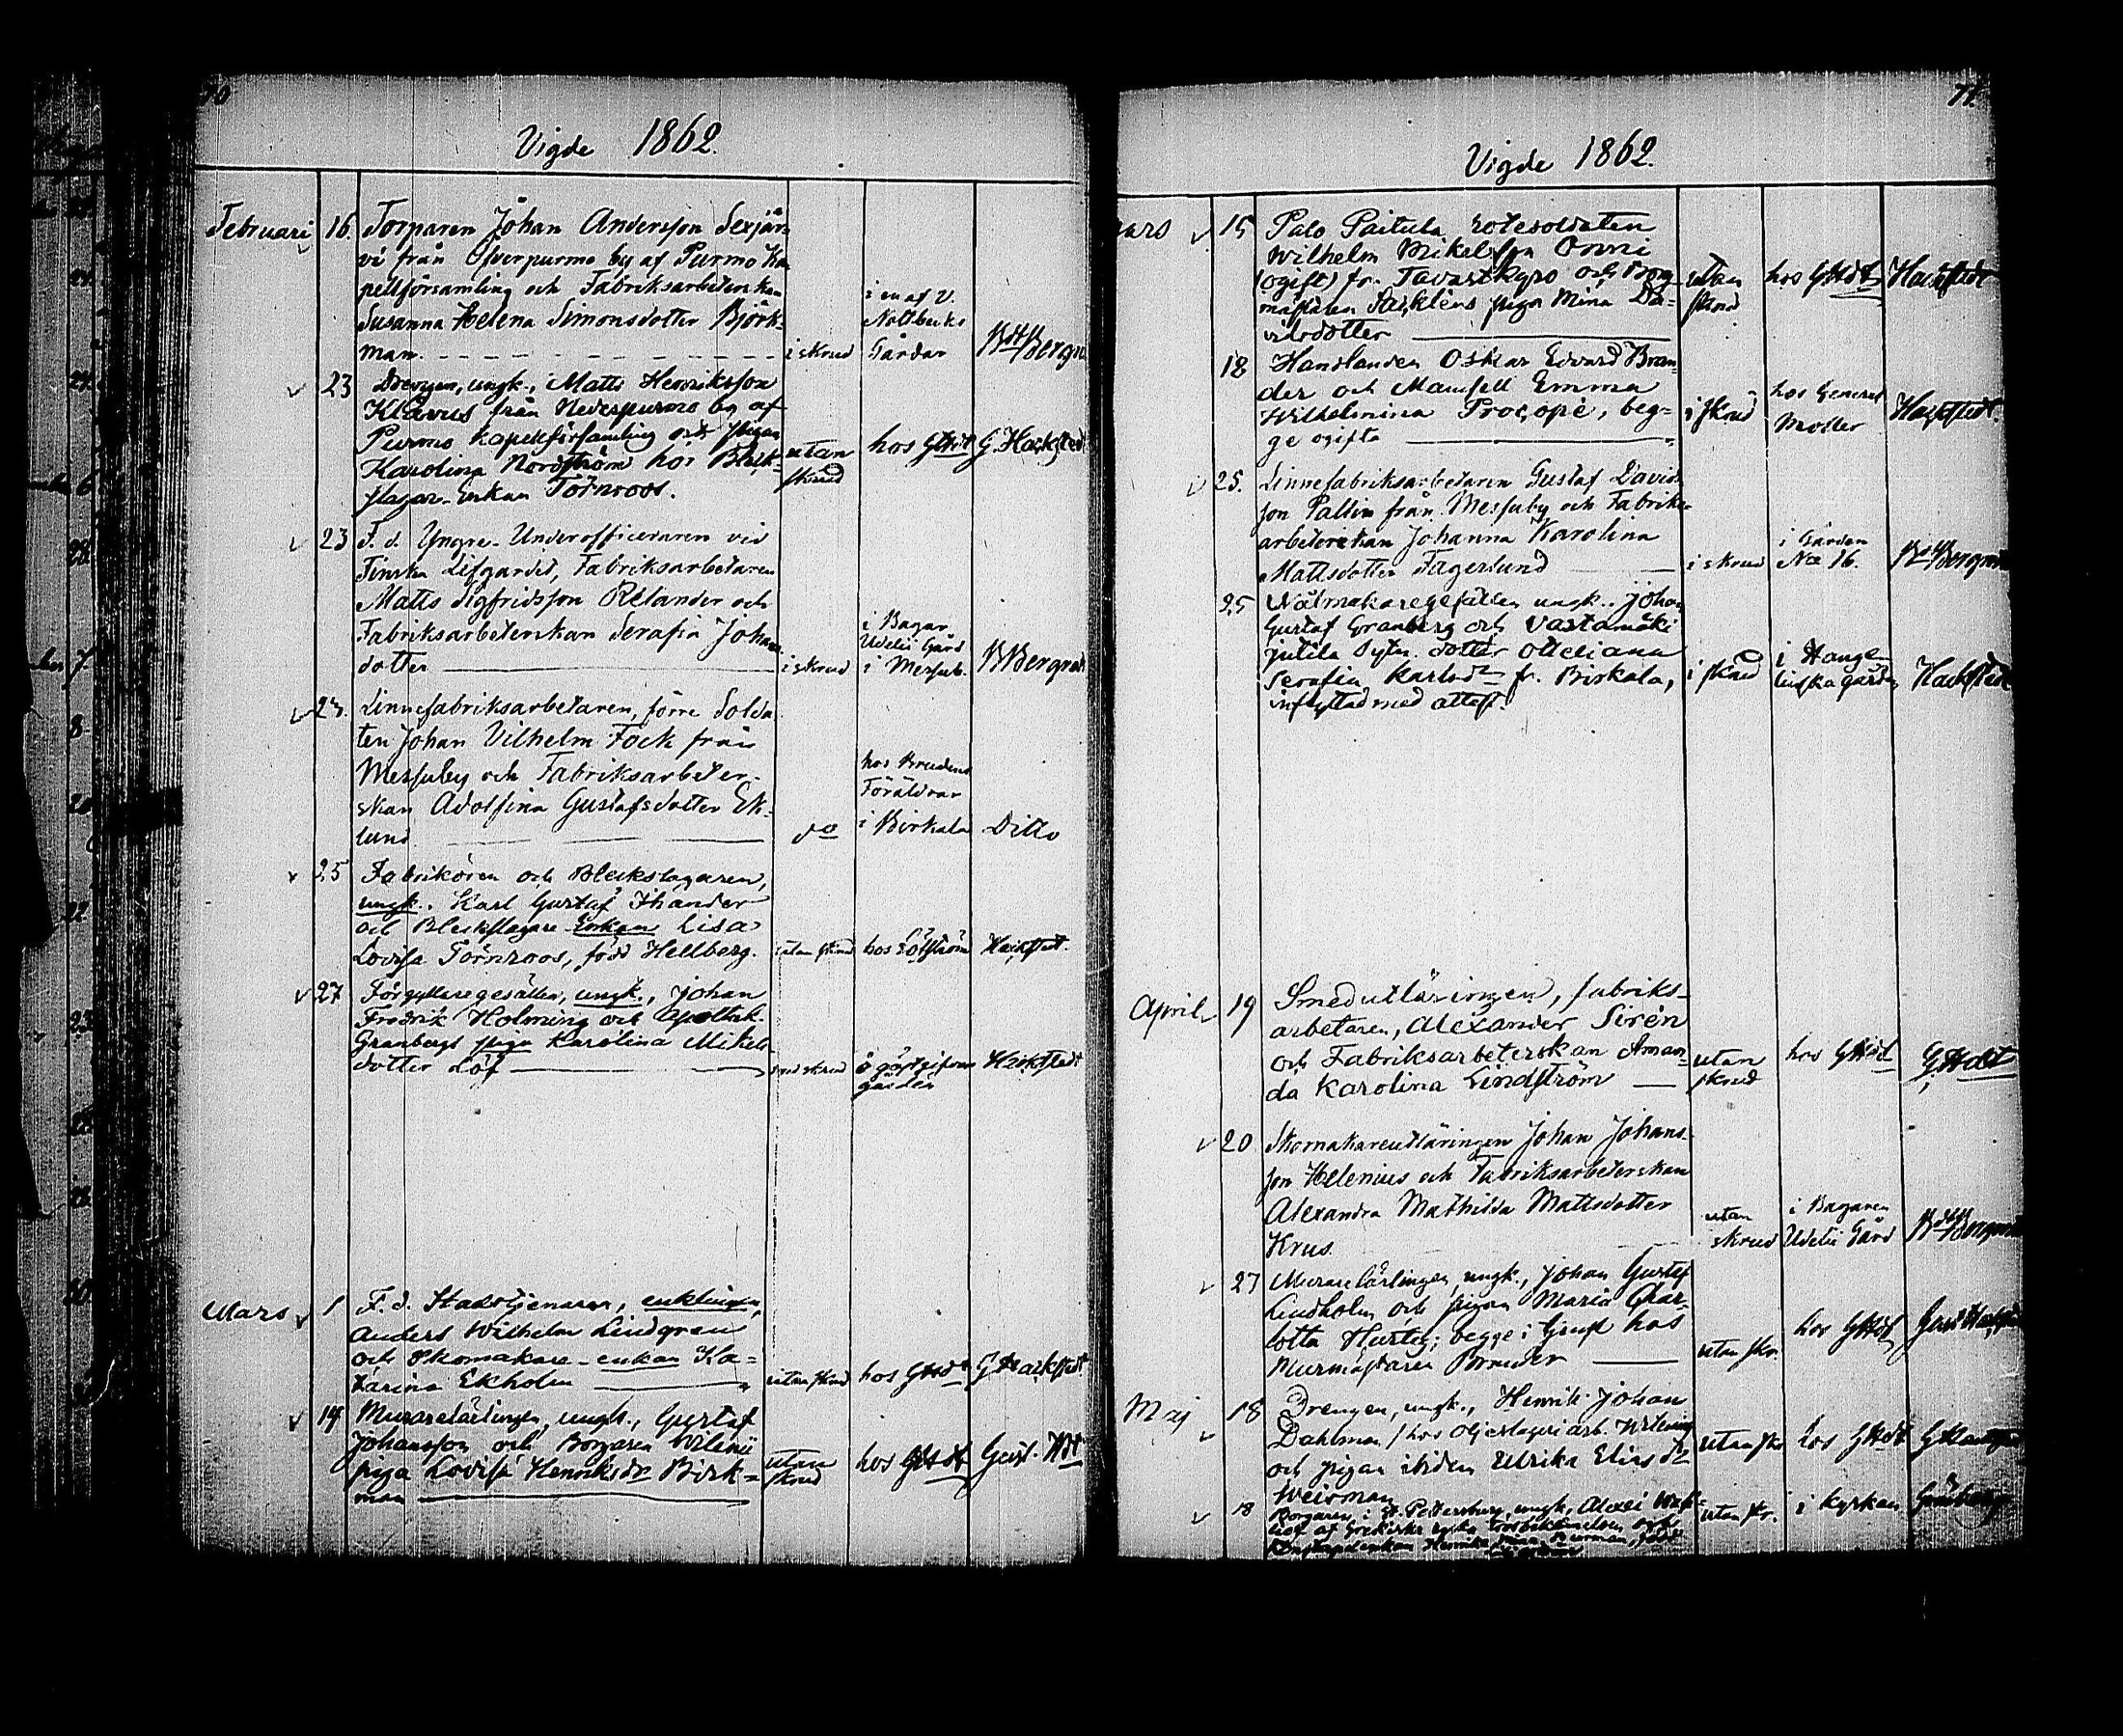 70
Vigde 1862.
Februari 16. Torparen Johan Andersson Sexjär-
vi från Öfverpurmo by af Purmo Ka
pellförsamling och Fabriksarbeterskan
Susanna Helena Simonsdotter Björk-
man. i skrud
i en af v.
Nottbecks
Gårdar
23 Drengen, ungk., Matts Henriksson
Klåvus från Nederpurmo by af
Purmo Kapellförsamling och pigan
Karolina Nordström hos Bleck-
slagar-Enkan Törnroos.
utan
skrud
hos GHdt G. Hackstedt
23 F. d. Yngre-Underofficeraren vid
Finska Lifgardet, Fabriksarbetaren
Matts Sigfridsson Relander och
Fabriksarbeterskan Serafia Johans
dotter i skrud
i Bagar
Udelii Gård
i Messub.
Linnefabriksarbetaren, förre Solda
ten Johan Vilhelm Fock från
Messuby och Fabriksarbeter-
skan Adolfina Gustafsdotter Ek-
lund do
hos Brudens
Föräldrar
i Birkala Ditto
25 Fabrikören och Bleckslagaren,
ungk. Karl Gustaf Thander
och Bleckslagare Enkan Lisa
Lovisa Törnroos, född Hellberg.
utan skrud hos Löfström Hackstedt.
27 Förgyllaregesällen, ungk., Johan
Fredrik Holming och Apothek.
Granbergs piga Karolina Mikels
dotter Löf
skrud å gästgifvare
gården Hackstedt
Mars 1 F. d. Stadstjenaren, enklingen,
Anders Wilhelm Lindgren
och Skomakare-enkan Ka-
tarina Ekholm
utan skrud hos GHdt G Hackstedt
14 Murarelärlingen, ungk., Gustaf
Johansson och Borgaren Wilenii
piga Lovisa Henriksdr Björk-
man
utan
skrud hos GHdt Gust. Hdt
71.
Vigde 1862.
Mars 15 Palo Paitula rotesoldaten
Wilhelm Mikelsson Onni
(ogift) fr. Tavastkyro och Borg
mästaren piga Mina Da-
vidsdotter
utan
skrud hos GHdt Hackstedt
18 Handlanden Oskar Edvard Bran-
der och Mamsell Emma
Wilhelmina Procopé, beg-
ge ogifta
i skrud hos General
Moller Hackstedt.
25. Linnefabriksarbetaren Gustaf Davids
son Pallin från Messuby och Fabriks-
arbeterskan Johanna Karolina
Mattsdotter Fagerlund i skrud
i Gården
No 16.
25 Nålmakaregesällen ungk. Johan
Gustaf Granberg och Vastamäki
jutila dotter Otteliana
Serafia Karlsdr fr. Birkala,
inflyttad med attest.
i skrud i
gården Hackstedt
April 19 Smedutläringen, fabriks-
arbetaren, Alexander Sirén
och Fabriksarbeterskan Aman-
da Karolina Lindström
utan
skrud hos GHdt G. Hdt
20 Skomakareutläringen Johan Johans-
son Helenius och Fabriksarbeterskan
Alexandra Mathilda Mattsdotter
Krus.
utan
skrud
i Bagaren
Udelii Gård
27 Murarelärlingen, ungk., Johan Gustaf
Lindholm och pigan Maria Char-
lotta Hurtig; begge i tjenst hos
Murmästaren Brander
utan skr. hos GHdt
Maj 18 Drengen, ungk., Henrik Johan
Dahlman / hos oljeslageriarb.
och pigan ibidem Ulrika Eliasdr
Weisman
utan skr hos GHdt
18 Borgaren i St. Pettersburg, ungk., Alexei
utan skr. i Kyrkan